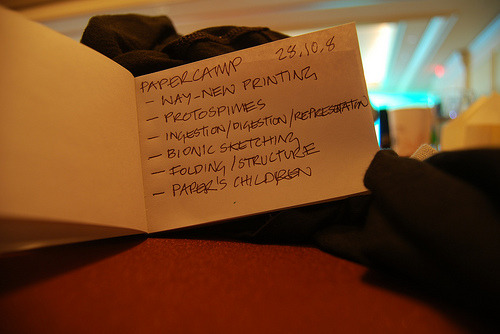 PAPERCAMP 28.10.8
- WAY-NEW PRINTING
- PROTOSPIMES
- INGESTION/DIGESTION/REPRESENTATION
- BIONIC SKETCHING
- FOLDING/STRUCTURE
- PAPER'S CHILDREN